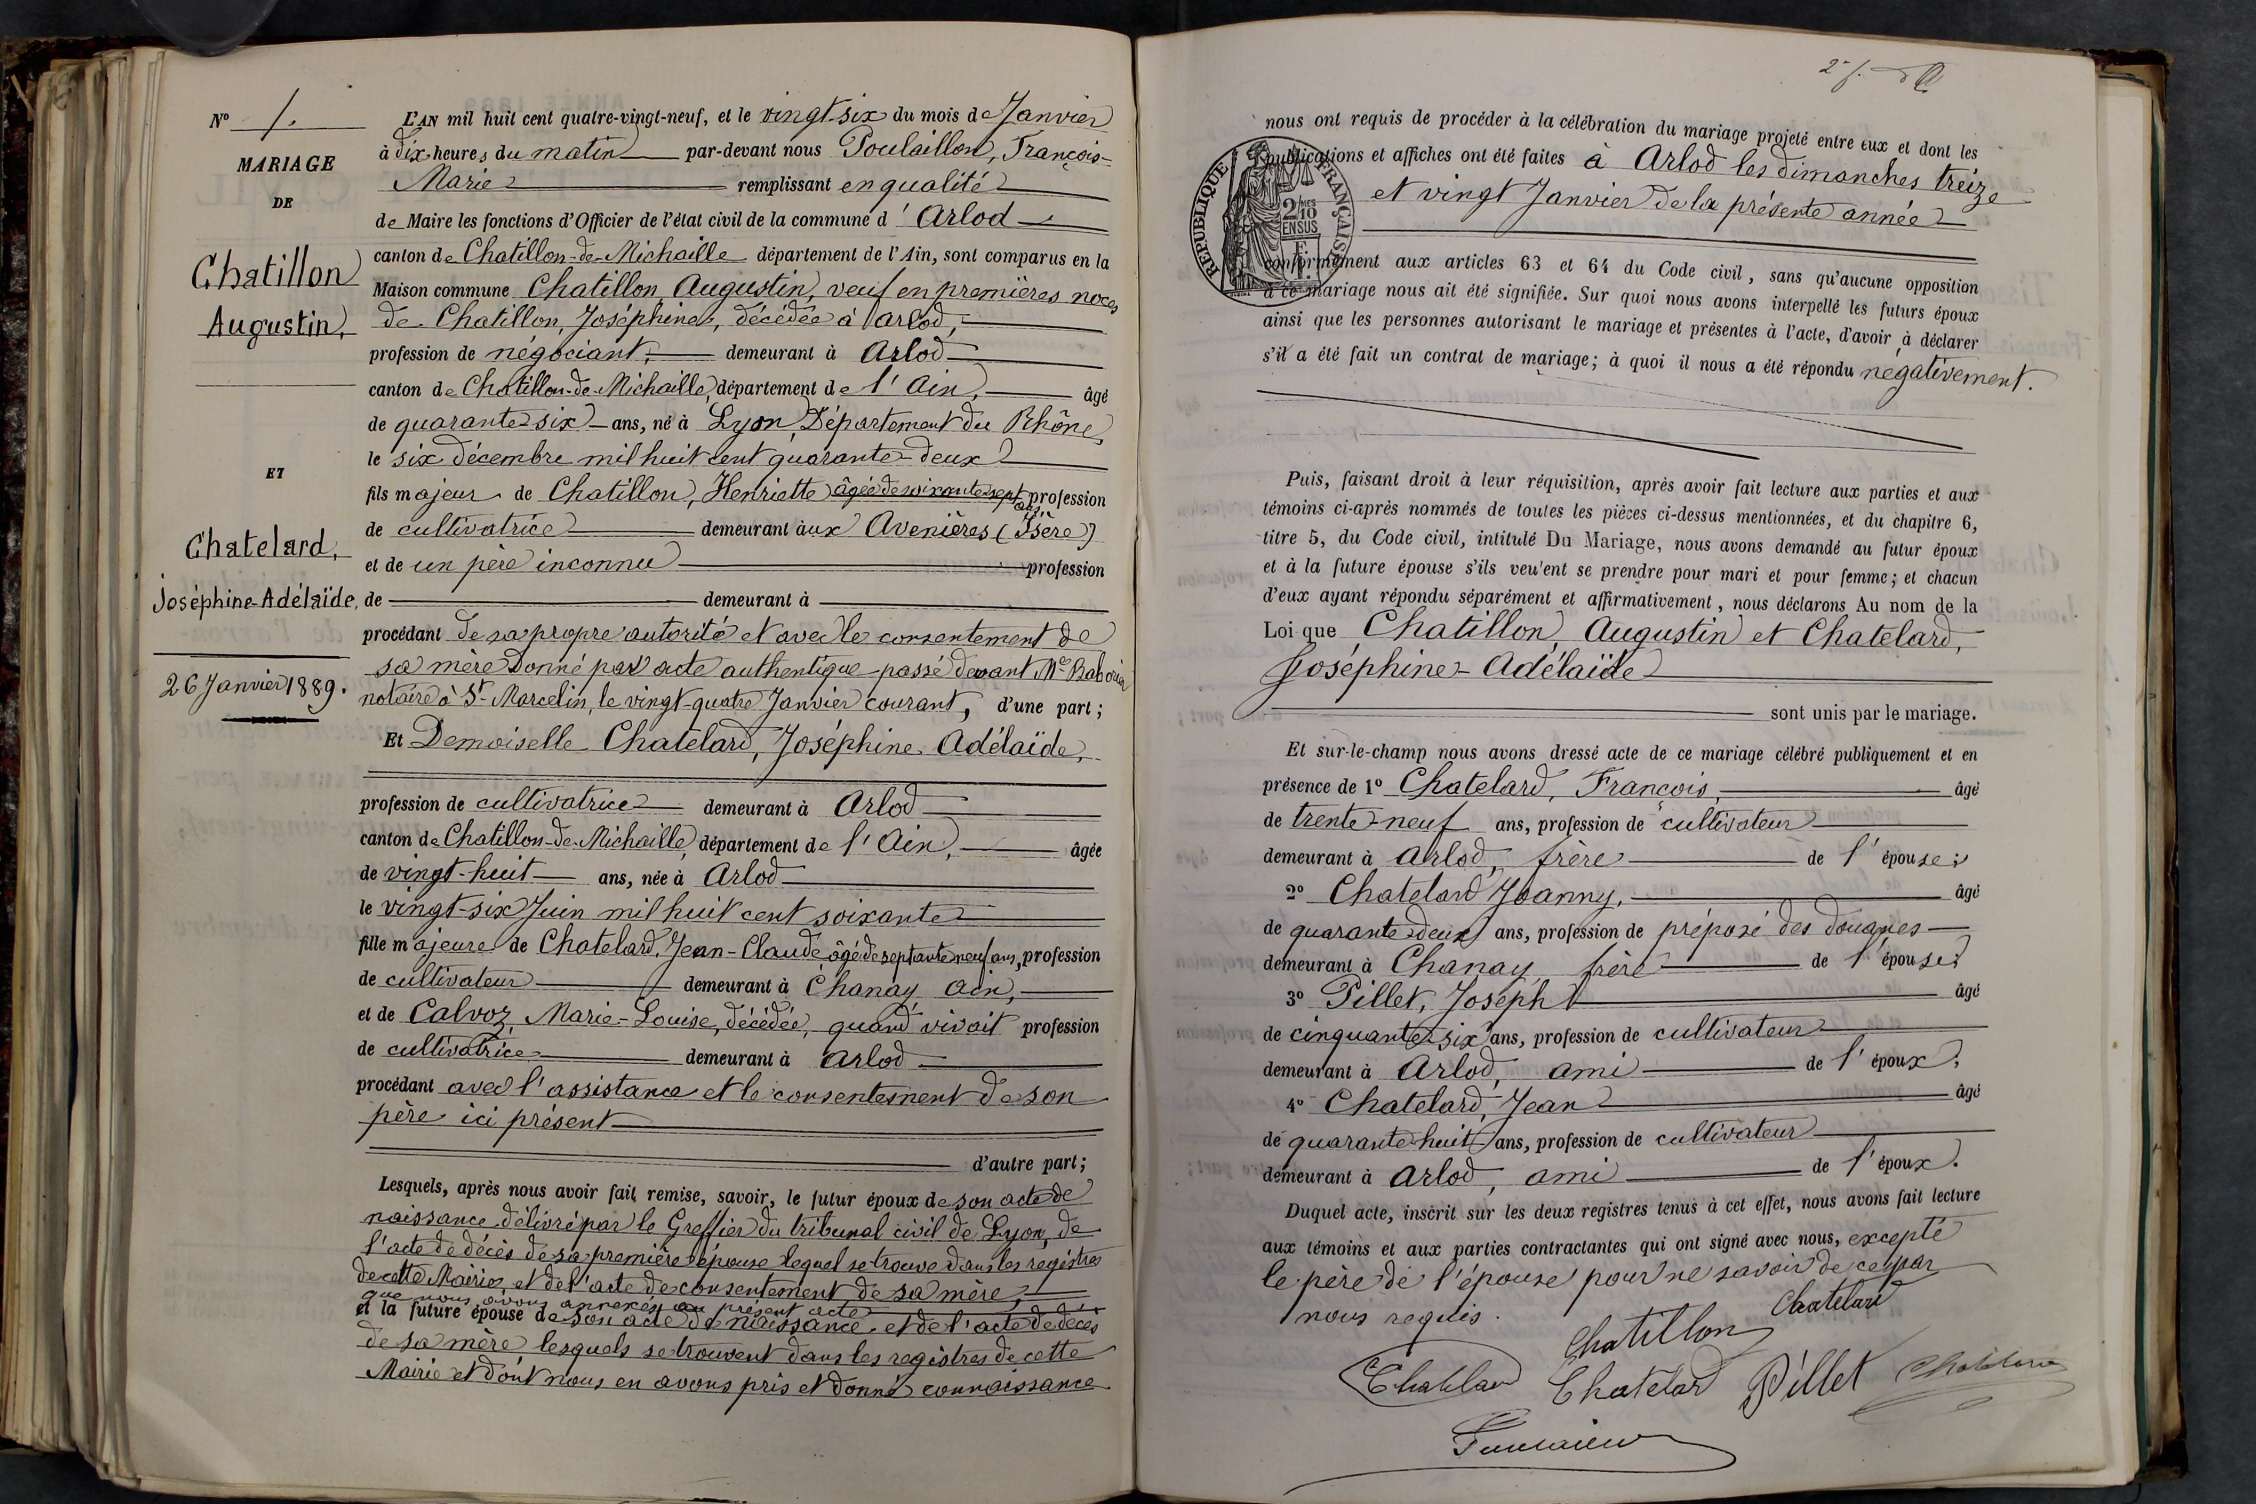 N° 1.
MARIAGE
DE
Chatillon
Augustin,
ET
Chatelard,
Joséphine-Adélaïde,
26 Janvier 1889.
L'AN mil huit cent quatre-vingt-neuf, et le vingt-six du mois de Janvier
à dix heures du matin par-devant nous Poulaillon, François-
Marie remplissant en qualité
de Maire les fonctions d'Officier de l'état civil de la commune d'Arlod
canton de Chatillon-de-Michaille département de l'Ain, sont comparus en la
Maison commune Chatillon Augustin, veuf en premières noces
de Chatillon, Joséphine, décédée à Arlod,
profession de négociant, demeurant à Arlod
canton de Chatillon-de-Michaille, département de l'Ain, âgé
de quarante-six ans, né à Lyon, Département du Rhône,
le six décembre mil huit cent quarante-deux
fils majeur de Chatillon, Henriette âgée de soixante-sept ans profession
de cultivatrice demeurant aux Avenières (Isère)
et de un père inconnu profession
de demeurant à
procédant de sa propre autorité et avec le consentement de
sa mère donné par acte authentique passé devant Me
notaire à St-Marcelin, le vingt-quatre Janvier courant, d'une part;
Et Demoiselle Chatelard, Joséphine Adélaïde,
profession de cultivatrice demeurant à Arlod
canton de Chatillon-de-Michaille, département de l'Ain, âgée
de vingt-huit ans, née à Arlod
le vingt-six Juin mil huit cent soixante
fille majeure de Chatelard, Jean-Claude âgé de septante neuf ans, profession
de cultivateur demeurant à Chanay, Ain,
et de Calvoz, Marie-Louise, décédée, quand vivait profession
de cultivatrice demeurant à Arlod
procédant avec l'assistance et le consentement de son
père ici présent
d'autre part;
Lesquels, après nous avoir fait remise, savoir, le futur époux de son acte de
naissance délivré par le Greffier du tribunal civil de Lyon, de
l'acte de décès de sa première épouse lequel se trouve dans les registres
de cette Mairie, et de l'acte de consentement de sa mère,
que nous avons annexés au présent acte
et la future épouse de son acte de naissance et de l'acte de décès
de sa mère lesquels se trouvent dans les registres de cette
Mairie et dont nous en avons pris et donné connaissance
2e f.
nous ont requis de procéder à la célébration du mariage projeté entre eux et dont les
publications et affiches ont été faites à Arlod les dimanches treize
et vingt Janvier de la présente année
RÉPUBLIQUE FRANÇAISE
2/10
EN SUS
conformément aux articles 63 et 64 du Code civil, sans qu'aucune opposition
à ce mariage nous ait été signifiée. Sur quoi nous avons interpellé les futurs époux
ainsi que les personnes autorisant le mariage et présentes à l'acte, d'avoir à déclarer
s'il a été fait un contrat de mariage; à quoi il nous a été répondu négativement.
Puis, faisant droit à leur réquisition, après avoir fait lecture aux parties et aux
témoins ci-après nommés de toutes les pièces ci-dessus mentionnées, et du chapitre 6,
titre 5, du Code civil, intitulé Du Mariage, nous avons demandé au futur époux
et à la future épouse s'ils veulent se prendre pour mari et pour femme; et chacun
d'eux ayant répondu séparément et affirmativement, nous déclarons Au nom de la
Loi que Chatillon Augustin et Chatelard,
Joséphine-Adélaïde
sont unis par le mariage.
Et sur-le-champ nous avons dressé acte de ce mariage célébré publiquement et en
présence de 1° Chatelard, François, âgé
de trente-neuf ans, profession de cultivateur
demeurant à Arlod, frère de l'épouse;
2° Chatelard Joanny, âgé
de quarante-deux ans, profession de préposé des douanes
demeurant à Chanay, frère de l'épouse;
3° Pillet, Joseph âgé
de cinquante-six ans, profession de cultivateur
demeurant à Arlod, ami de l'époux;
4° Chatelard, Jean âgé
de quarante-huit ans, profession de cultivateur
demeurant à Arlod, ami de l'époux.
Duquel acte, inscrit sur les deux registres tenus à cet effet, nous avons fait lecture
aux témoins et aux parties contractantes qui ont signé avec nous, excepté
le père de l'épouse pour ne savoir de ce par
nous requis.
Chatelard
Chatillon
Chatelard Pillet